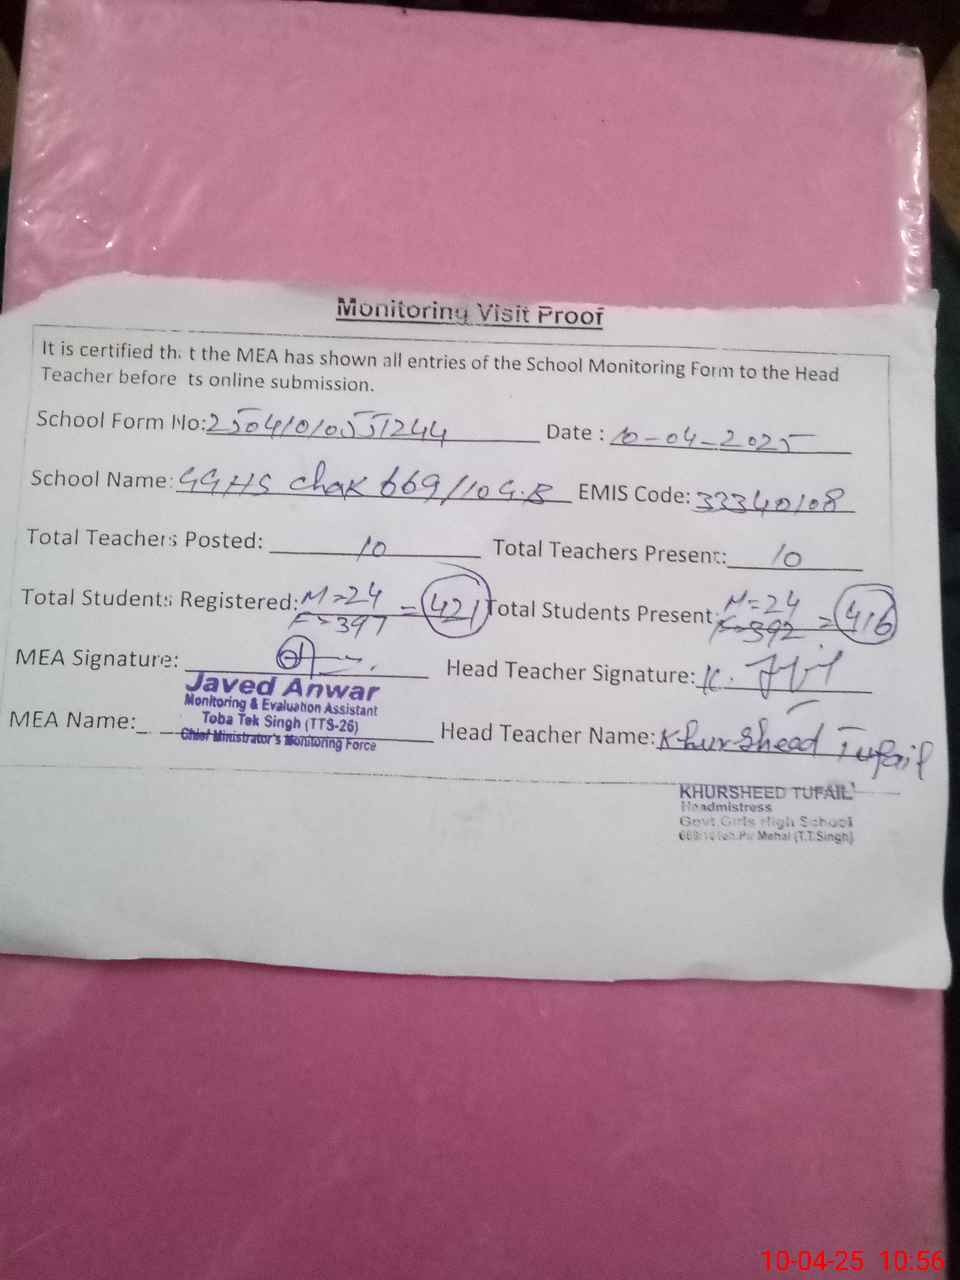 Monitoring Visit Proof
It is certified that the MEA has shown all entries of the School Monitoring Form to the Head
Teacher before its online submission.
School Form No: 25041010551244 Date : 10-04-2025
School Name: GGHS Chak 669/10 G.B EMIS Code: 33340108
Total Teachers Posted: 10 Total Teachers Present: 10
Total Students Registered: M=24 F=397 = 421 Total Students Present: M=24 F=392 = 416
MEA Signature: Head Teacher Signature: K.
Javed Anwar
Monitoring & Evaluation Assistant
Toba Tek Singh (TTS-26)
Chief Minister's Monitoring Force
MEA Name: Head Teacher Name: Khursheed Tufail
KHURSHEED TUFAIL
Headmistress
Govt Girls High School
Mehal (T.T.Singh)
10-04-25 10:56